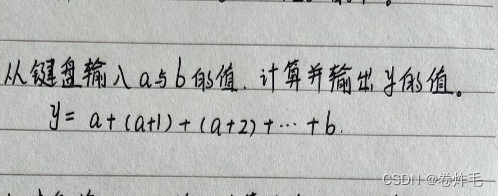 从键盘输入a与b的值.计算并输出y的值。
y= a+(a+1)+(a+2)+…+b.
CSDN @卷炸毛